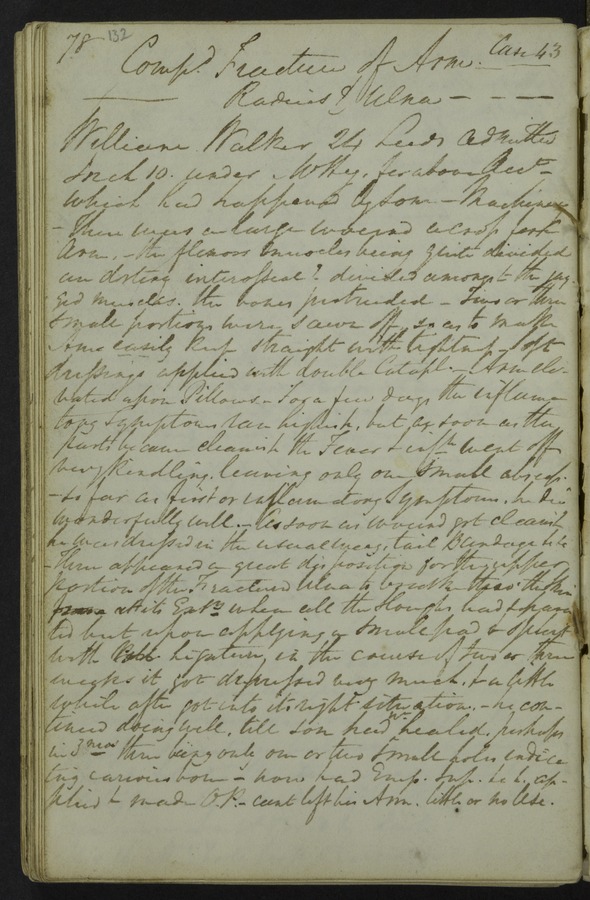 78 132
Comp.d Fracture of Arm. Case 43
Radius & Ulna
William Walker 24 Leeds Admitted
10. under Mr Hey, for above Acct
which had happened by some Machinery
- There was a large wound across fore
Arm, the flexors muscles being quite divided
an artery interosseal? divided amongst the jag
ged muscles. the bones protruded - Two or three
small portions were sawn off, so as to make
Arm easily kept straight with Soft
dressings applied with double Catapl. - Arm ele
vated upon Pillows - For a few days the inflamma
tory Symptoms ran highish, but as soon as the
parts became cleanish the Fever & infln went off
very kindling, leaving only one small abscess.
- so far as first or inflammatory Symptoms, he did
wonderfully well. - As soon as wound got cleanish
he was dressed in the usual way, tail Bandage &c
- There appeared a great disposition for the upper
portion of the Fractured Ulna to break thro' the skin
at its Exty when all the sloughs had separa
ted but upon applying a small pad & splint
with ligature, in the course of two or three
weeks it got depressed very much, & a little
while after got into its right situation. - he con
tinued doing well, till son had wd healed, perhaps
in 3 mos there being only one or two small holes indica
ting carious bone - now had Emp. Sap. &c ap
plied & made O.P. - cant lift his Arm. little or no Use.